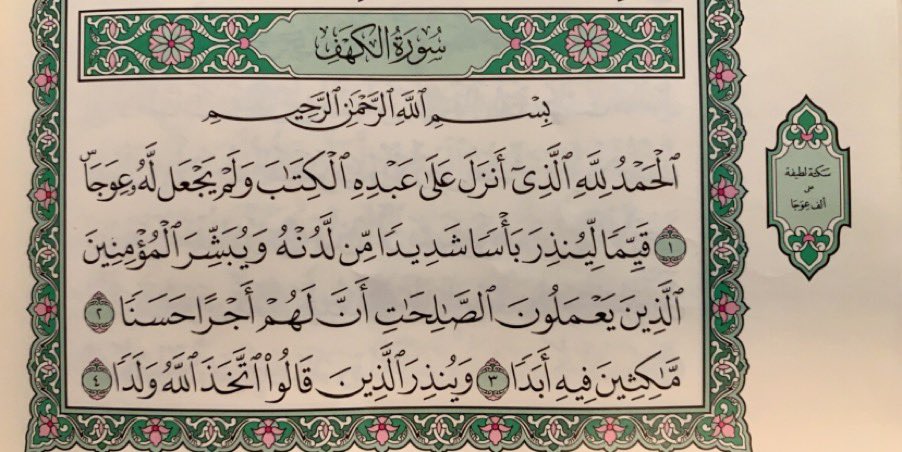 سُورَةُ الكَهْفِ
بِسْمِ ٱللَّهِ ٱلرَّحْمَٰنِ ٱلرَّحِيمِ
ٱلْحَمْدُ لِلَّهِ ٱلَّذِىٓ أَنزَلَ عَلَىٰ عَبْدِهِ ٱلْكِتَٰبَ وَلَمْ يَجْعَل لَّهُۥ عِوَجَاۜ
١ قَيِّمًا لِّيُنذِرَ بَأْسًا شَدِيدًا مِّن لَّدُنْهُ وَيُبَشِّرَ ٱلْمُؤْمِنِينَ
ٱلَّذِينَ يَعْمَلُونَ ٱلصَّٰلِحَٰتِ أَنَّ لَهُمْ أَجْرًا حَسَنًا ٢
مَّٰكِثِينَ فِيهِ أَبَدًا ٣ وَيُنذِرَ ٱلَّذِينَ قَالُوا۟ ٱتَّخَذَ ٱللَّهُ وَلَدًا ٤
سكتة لطيفة
ص
ألف عِوَجَا